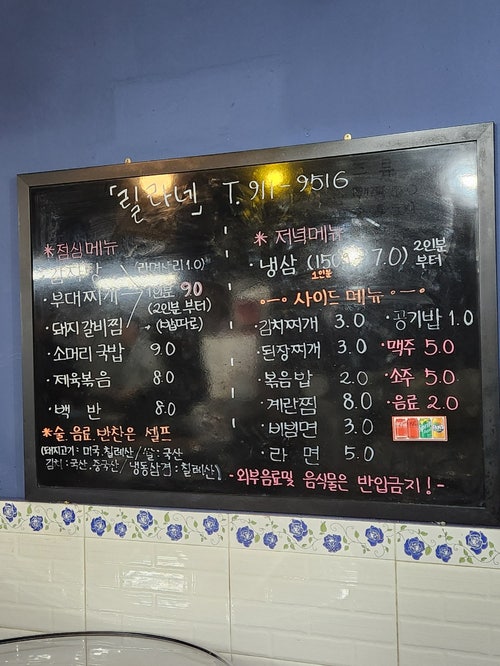 「릴라네」 T. 911-9516
*점심메뉴
감자탕 (라면사리 1.0)
·부대찌개 1인분 9.0
(2인분 부터)
·돼지갈비찜 → (밥따로)
·소머리국밥 9.0
·제육볶음 8.0
·백 반 8.0
*술, 음료, 반찬은 셀프
(돼지고기 : 미국, 칠레산 / 쌀 : 국산
김치 : 국산, 중국산 / 냉동삼겹 : 칠레산)
* 저녁메뉴
·냉삼 (150 7.0) 2인분 부터
1인분
사이드 메뉴
김치찌개 3.0 ·공기밥 1.0
·된장찌개 3.0 ·맥주 5.0
·볶음밥 2.0 ·소주 5.0
·계란찜 8.0 ·음료 2.0
·비빔면 3.0
·라 면 5.0
-외부음료및 음식물은 반입금지!-